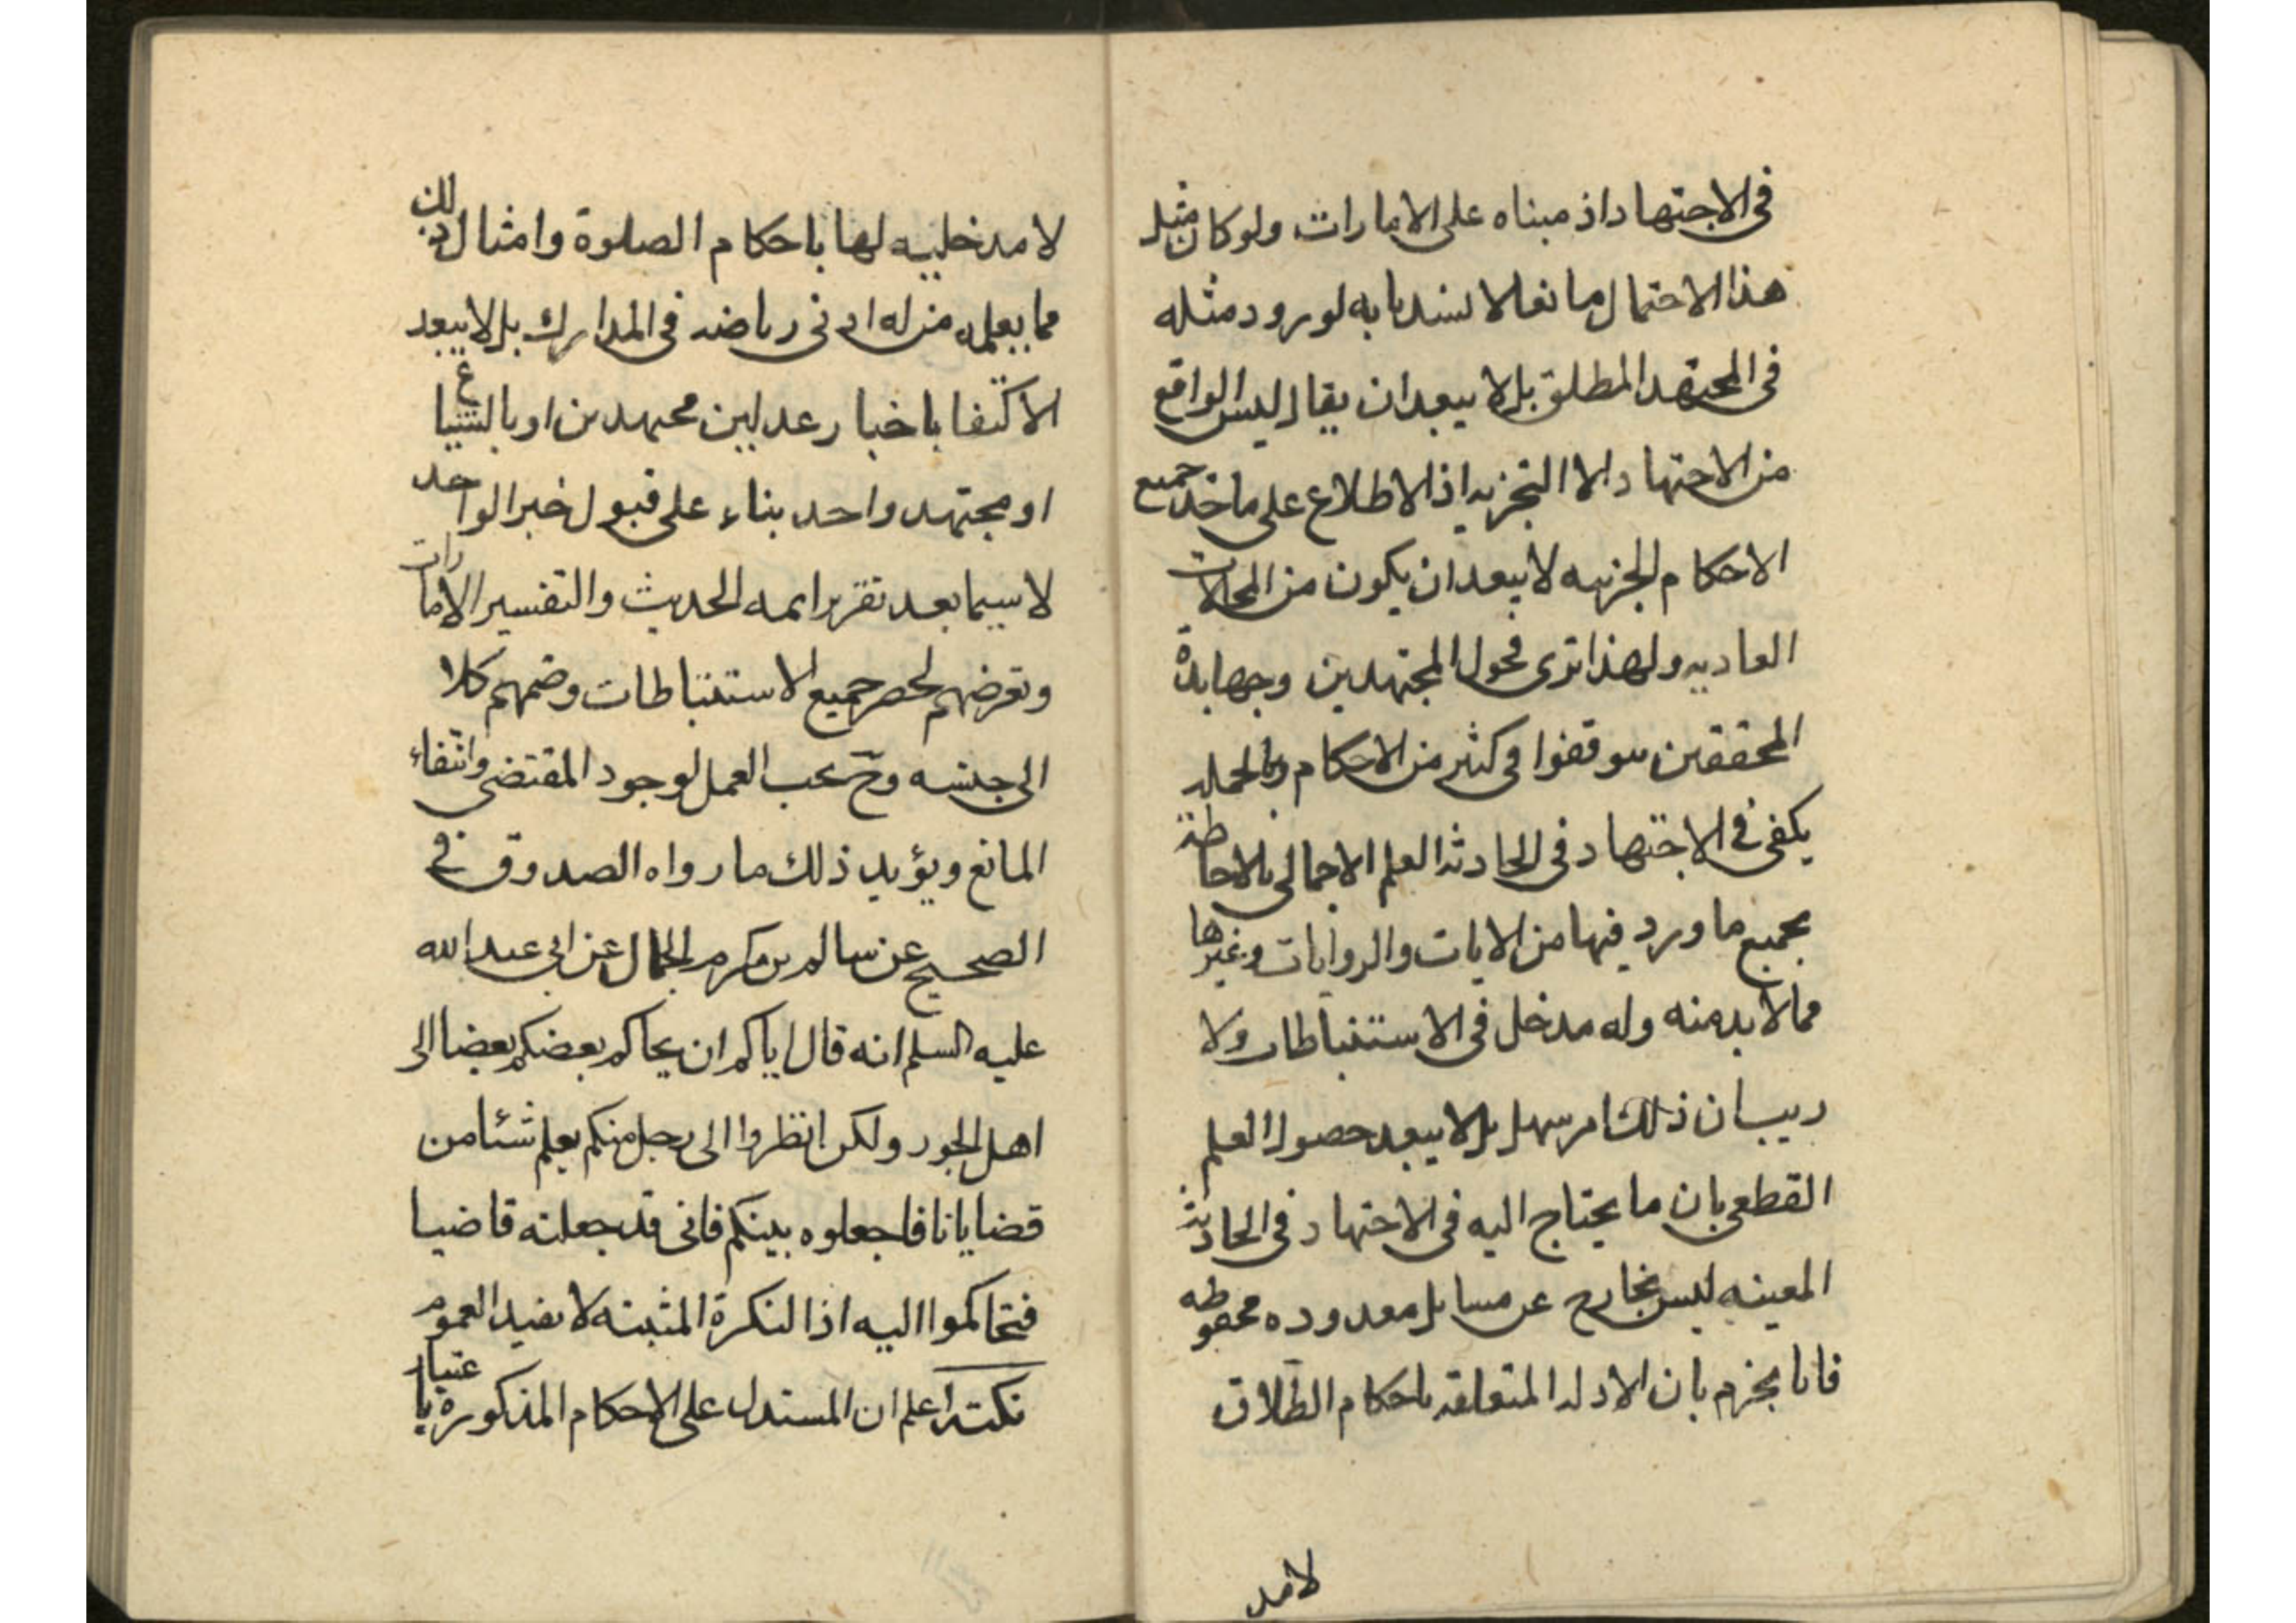 فى الاجتهاد اذ مبناه على الامارات ولو كان مثل
هذا الاحتمال مانعا لانسد بابه لورود مثله
فى المجتهد المطلق بل لا يبعد ان يقال ليس الواقع
من الاجتهاد الا التجزيه اذ الاطلاع على ماخذ جميع
الاحكام الجزييه لا يبعد ان يكون من المحالات
العاديه ولهذا ترى فحول المجتهدين وجهابدة
المحققين توقفوا فى كثير من الاحكام وبالجمله
يكفى فى الاجتهاد فى الحادثه العلم الاجمالى بالاحاطة
بجميع ما ورد فيها من الايات والروايات وغيرها
مما لا بد منه وله مدخل فى الاستنباطات ولا
ريب ان ذلك امر سهل بل لا يبعد حصول العلم
القطعى بان ما يحتاج اليه فى الاجتهاد فى الحادثه
المعينه ليس بخارج عن مسايل معدوده محفوظه
فانا نجزم بان الادله المتعلقه باحكام الطلاق
لامد
لا مدخليه لها باحكام الصلوة وامثال ذلك
مما يعلمه من له ادنى رياضه فى المدارك بل لا يبعد
الاكتفا باخبار عدلين مجتهدين او بالشياع
او مجتهد واحد بناء على قبول خبر الواحد
لا سيما بعد تقرير ايمه الحديث والتفسير الامارات
وتعرضهم لحصر جميع الاستنباطات وضمهم كلا
الى جنسه وح يجب العمل لوجود المقتضى وانتفاء
المانع ويؤيد ذلك ما رواه الصدوق فى
الصحيح عن سالم بن مكرم الجمال عن ابى عبد الله
عليه السلم انه قال اياكم ان يحاكم بعضكم بعضا الى
اهل الجور ولكن انظروا الى رجل منكم يعلم شئا من
قضايانا فاجعلوه بينكم فانى قد جعلته قاضيا
فتحاكموا اليه اذ النكرة المثبته لا تفيد العموم
نكته اعلم ان المستدل على الاحكام المذكورة باعتبار